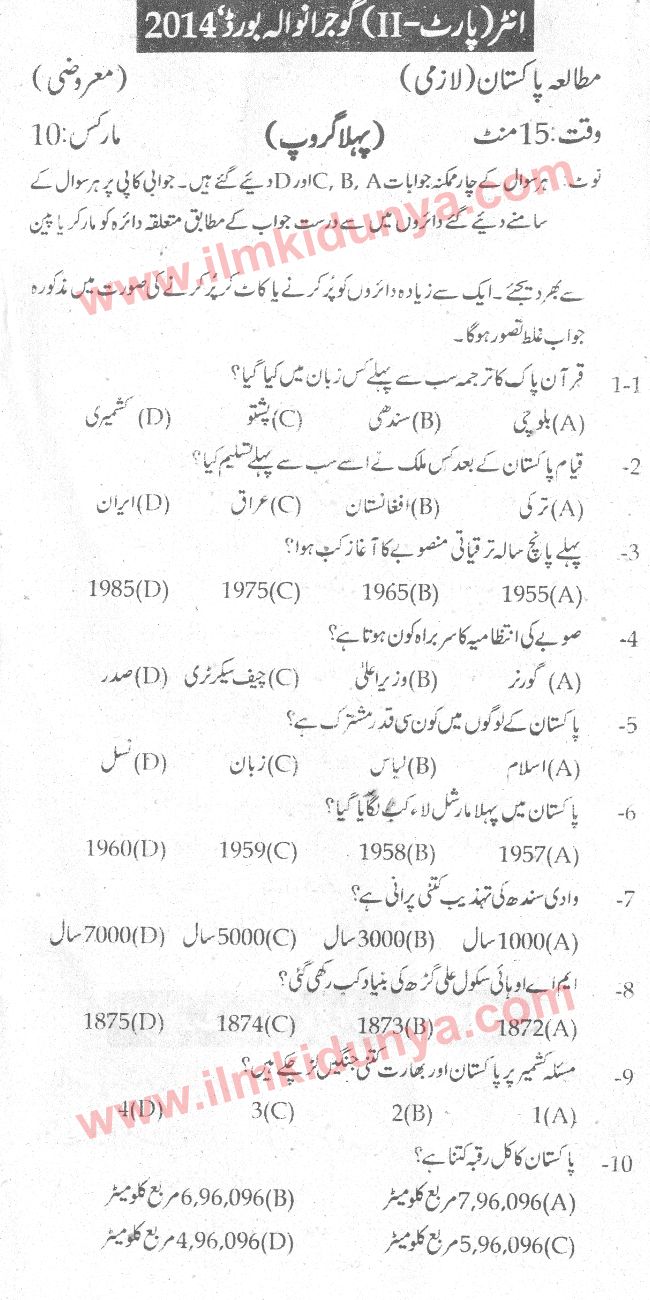 انٹر (پارٹ-II) گوجرانوالہ بورڈ، 2014
مطالعہ پاکستان (لازمی) (معروضی)
وقت:15 منٹ (پہلا گروپ) مارکس:10
نوٹ: ہر سوال کے چار ممکنہ جوابات C, B, A اور D دیئے گئے ہیں۔ جوابی کاپی پر ہر سوال کے
سامنے دیئے گئے دائروں میں سے درست جواب کے مطابق متعلقہ دائرہ کو مارکر یا پین
سے بھر دیجئے۔ ایک سے زیادہ دائروں کو پُر کرنے یا کاٹ کر پُر کرنے کی صورت میں مذکورہ
جواب غلط تصور ہوگا۔
1-1 قرآن پاک کا ترجمہ سب سے پہلے کس زبان میں کیا گیا؟
(A) بلوچی (B) سندھی (C) پشتو (D) کشمیری
2- قیام پاکستان کے بعد کس ملک نے اسے سب سے پہلے تسلیم کیا؟
(A) ترکی (B) افغانستان (C) عراق (D) ایران
3- پہلے پانچ سالہ ترقیاتی منصوبے کا آغاز کب ہوا؟
(A) 1955 (B) 1965 (C) 1975 (D) 1985
4- صوبے کی انتظامیہ کا سربراہ کون ہوتا ہے؟
(A) گورنر (B) وزیراعلیٰ (C) چیف سیکرٹری (D) صدر
5- پاکستان کے لوگوں میں کون سی قدر مشترک ہے؟
(A) اسلام (B) لباس (C) زبان (D) نسل
6- پاکستان میں پہلا مارشل لاء کب لگایا گیا؟
(A) 1957 (B) 1958 (C) 1959 (D) 1960
7- وادی سندھ کی تہذیب کتنی پرانی ہے؟
(A) 1000 سال (B) 3000 سال (C) 5000 سال (D) 7000 سال
8- ایم اے او ہائی سکول علی گڑھ کی بنیاد کب رکھی گئی؟
(A) 1872 (B) 1873 (C) 1874 (D) 1875
9- مسئلہ کشمیر پر پاکستان اور بھارت کتنی جنگیں لڑ چکے ہیں؟
(A) 1 (B) 2 (C) 3 (D) 4
10- پاکستان کا کل رقبہ کتنا ہے؟
(A) 7,96,096 مربع کلومیٹر (B) 6,96,096 مربع کلومیٹر
(C) 5,96,096 مربع کلومیٹر (D) 4,96,096 مربع کلومیٹر
www.ilmkidunya.com
www.ilmkidunya.com